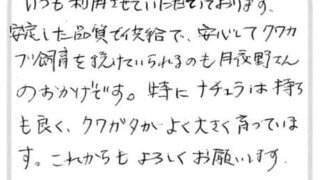 いつも利用させていただいております。
安定した品質で供給で、安心してクワカ
ブ飼育を続けていられるのも月夜野さん
のおかげです。特にナチュラは持ち
も良く、クワガタがよく大きく育っていま
す。これからもよろしくお願いします。